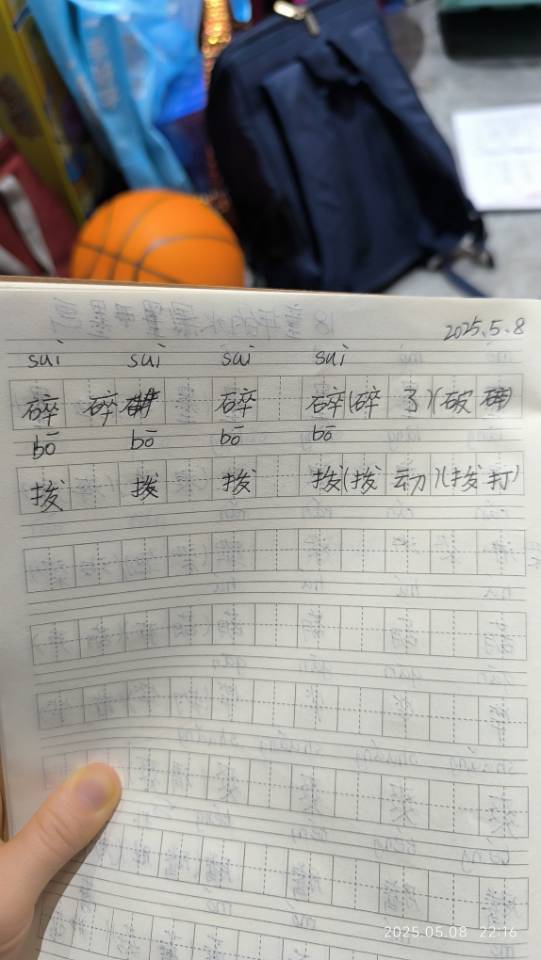 2025.5.8
suì suì suì suì
碎 碎 碎 碎(碎了)(破碎)
bō bō bō bō
拨 拨 拨 拨(拨动)(拨打)
2025.05.08 22:16